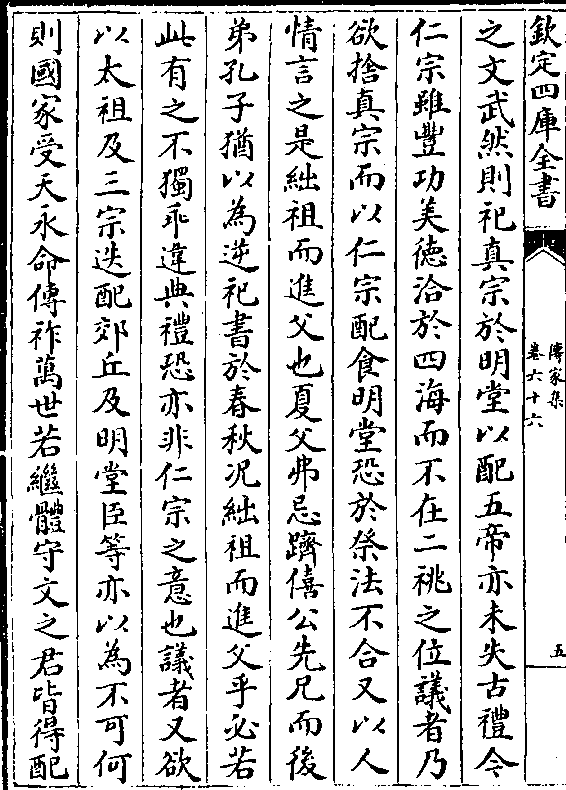 欽定四庫全書
傳家集
卷六十六
五
之文武然則祀真宗於明堂以配五帝亦未失古禮今
仁宗雖豐功美徳洽於四海而不在二祧之位議者乃
欲捨真宗而以仁宗配食明堂恐於祭法不合又以人
情言之是絀祖而進父也夏父弗忌躋僖公先兄而後
弟孔子猶以為逆祀書於春秋况絀祖而進父乎必若
此有之不獨乖違典禮恐亦非仁宗之意也議者又欲
以太祖及三宗迭配郊丘及明堂臣等亦以為不可何
則國家受天永命傳祚萬世若繼體守文之君皆得配